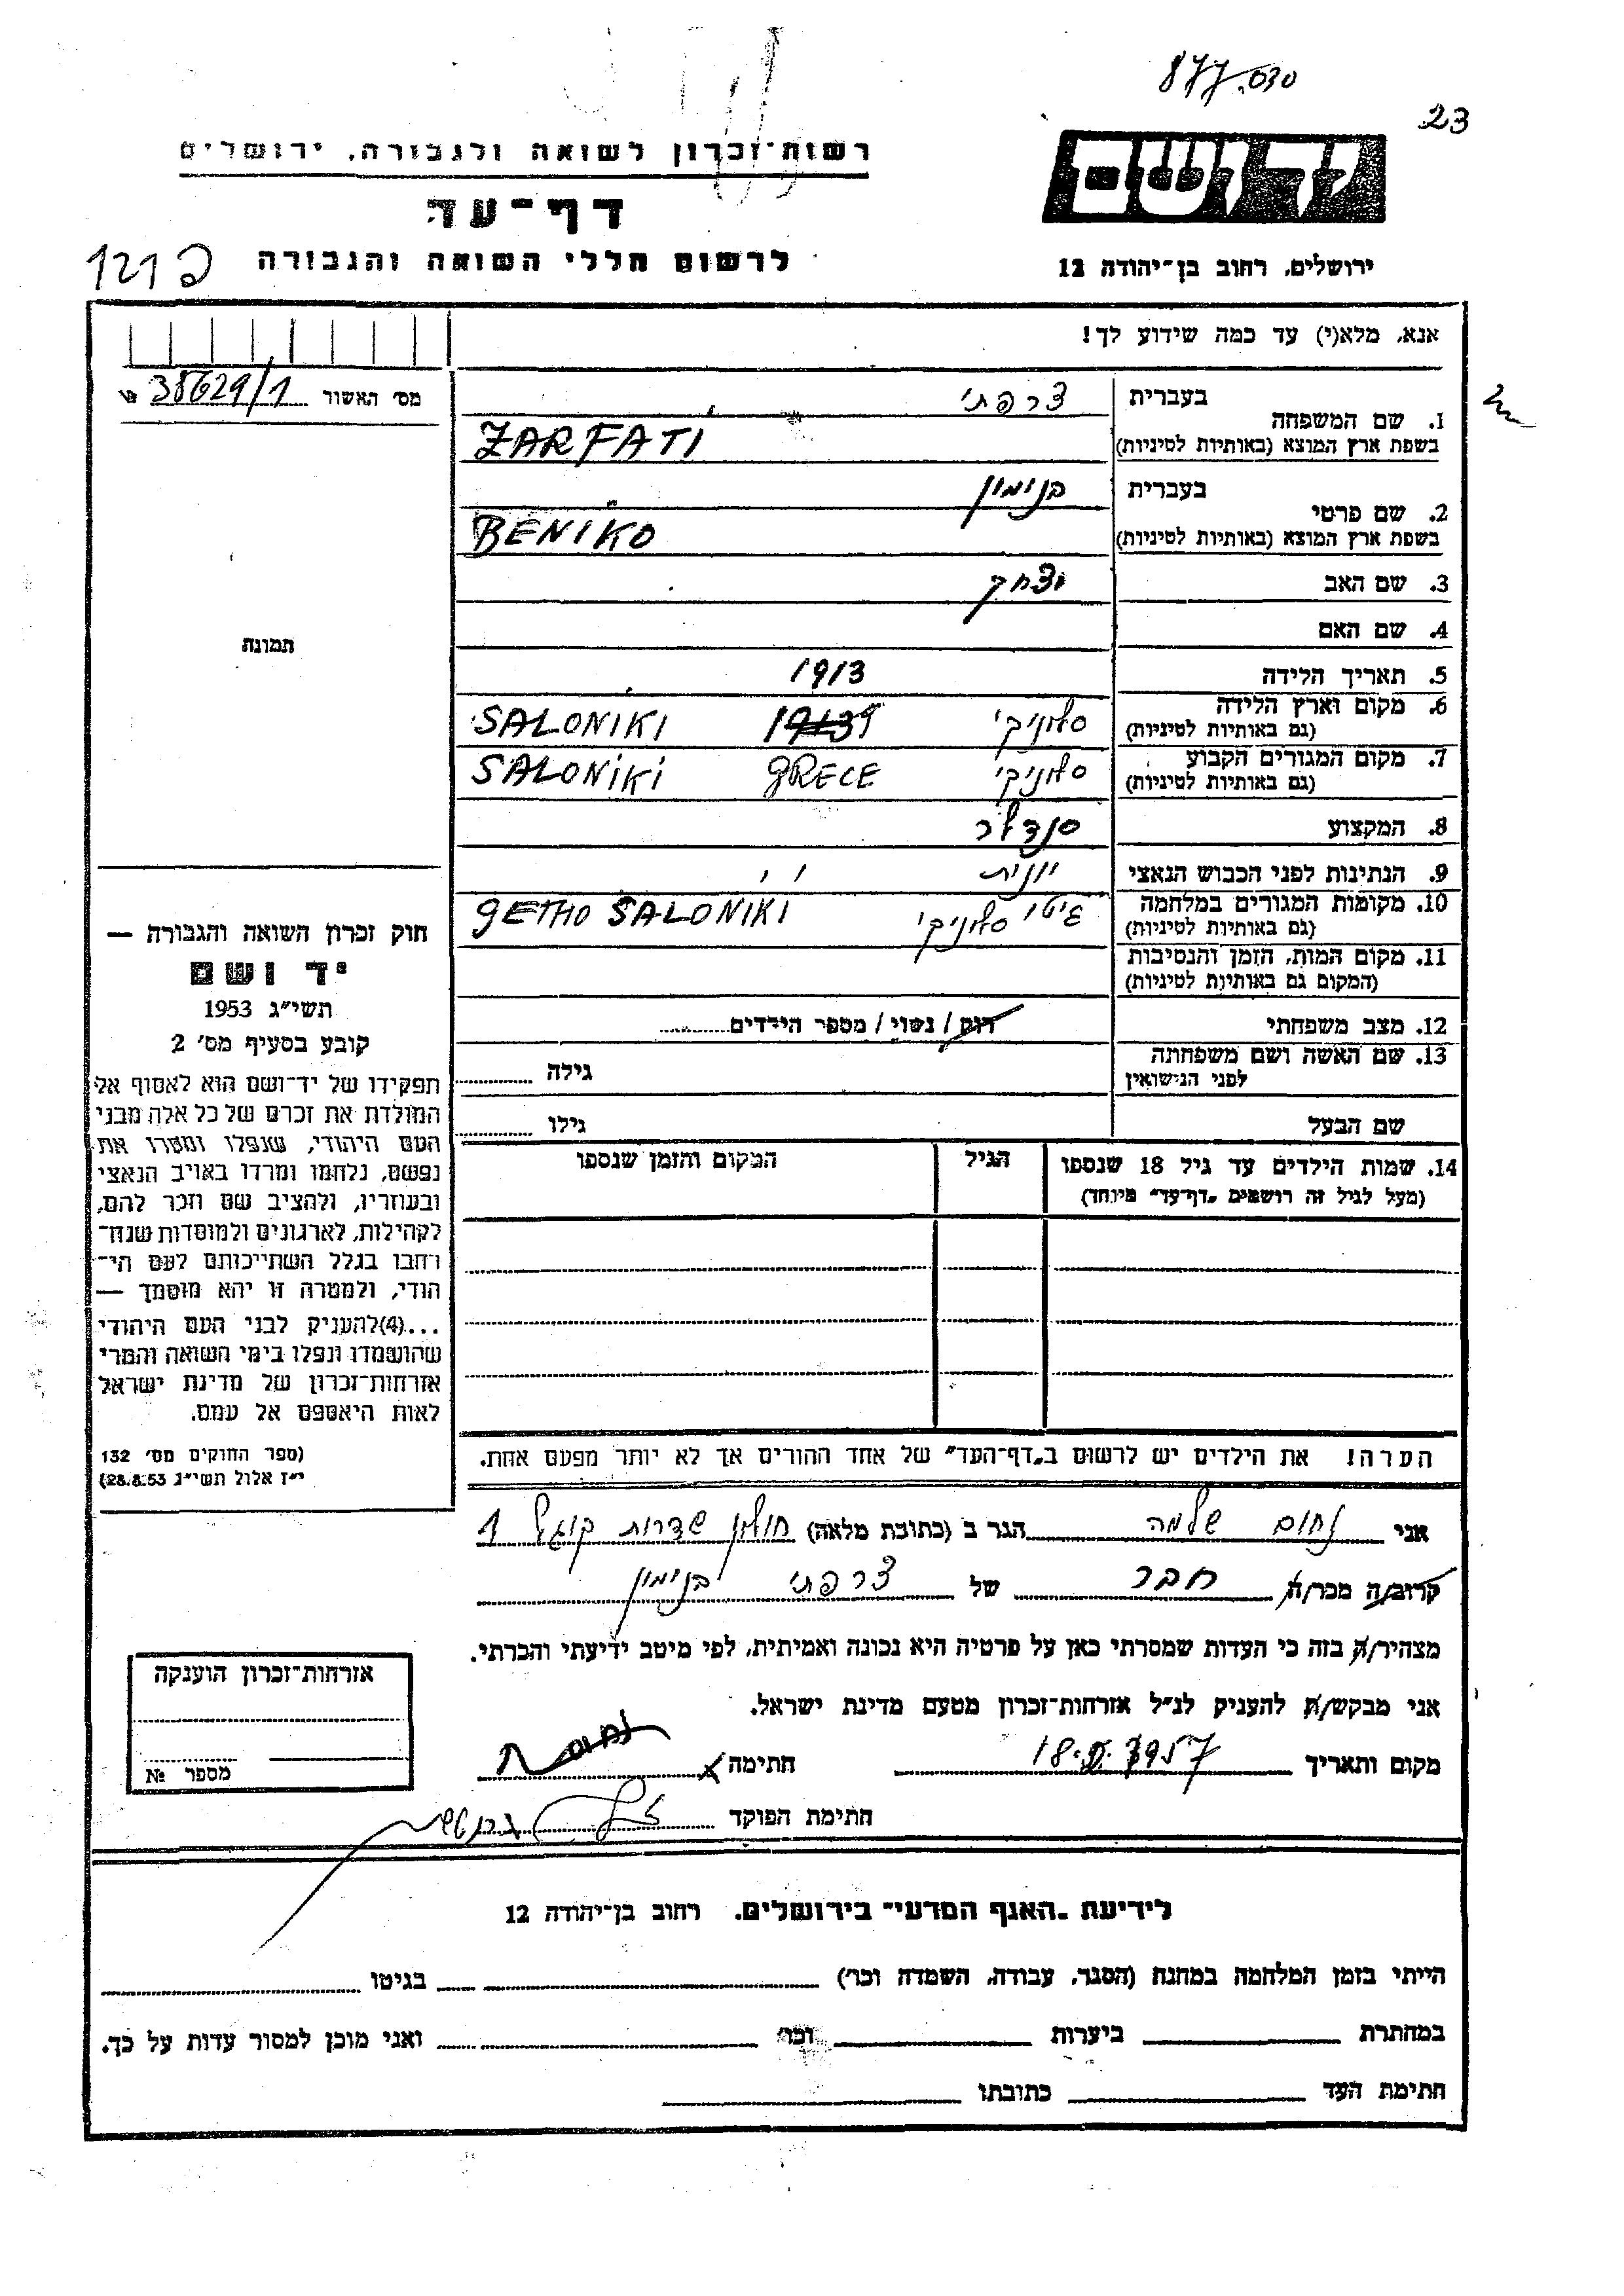 877.030
23
רשות-זכרון לשואה ולגבורה, ירושלים
דף-עד
לרשום חללי השואה והגבורה
ידושם
ירושלים, רחוב בן-יהודה 12
אנא, מלא(י) עד כמה שידוע לך!
מס' האשור 38629/1
1. שם המשפחה
בעברית צרפתי
בשפת ארץ המוצא (באותיות לטיניות) ZARFATI
2. שם פרטי
בעברית בנימין
בשפת ארץ המוצא (באותיות לטיניות) BENIKO
3. שם האב יצחק
4. שם האם
5. תאריך הלידה 1913
6. מקום וארץ הלידה סלוניקי SALONIKI
(גם באותיות לטיניות)
7. מקום המגורים הקבוע סלוניקי GRECE SALONIKI
(גם באותיות לטיניות)
8. המקצוע סנדלר
9. הנתינות לפני הכבוש הנאצי יונית
10. מקומות המגורים במלחמה גיטו סלוניקי GETHO SALONIKI
(גם באותיות לטיניות)
11. מקום המות, הזמן והנסיבות
(המקום גם באותיות לטיניות)
12. מצב משפחתי רוק / נשוי / מספר הילדים
13. שם האשה ושם משפחתה גילה
לפני הנישואין
שם הבעל גילו
14. שמות הילדים עד גיל 18 שנספו הגיל המקום והזמן שנספו
(מעל לגיל זה רושמים "דף-עד" מיוחד)
הערה! את הילדים יש לרשום ב"דף-העד" של אחד ההורים אך לא יותר מפעם אחת.
תמונה
חוק זכרון השואה והגבורה —
יד ושם
תשי"ג 1953
קובע בסעיף מס' 2
תפקידו של יד-ושם הוא לאסוף אל
המולדת את זכרם של כל אלה מבני
העם היהודי, שנפלו ומסרו את
נפשם, נלחמו ומרדו באויב הנאצי
ובעוזריו, ולהציב שם וזכר להם,
לקהילות, לארגונים ולמוסדות שנח-
רחבו בגלל השתייכותם לעם הי-
הודי, ולמטרה זו יהא מוסמך —
...(4)להעניק לבני העם היהודי
שהושמדו ונפלו בימי השואה והמרי
אזרחות-זכרון של מדינת ישראל
לאות היאספם אל עמם.
(ספר החוקים מס' 132
י"ז אלול תשי"ג 28.8.53)
אני נחום שלמה הגר ב (כתובת מלאה) חולון שדרות קוגל 1
קרוב/ה מכר/ה חבר של צרפתי בנימין
מצהיר/ה בזה כי העדות שמסרתי כאן על פרטיה היא נכונה ואמיתית, לפי מיטב ידיעתי והכרתי.
אני מבקש/ת להעניק לנ"ל אזרחות-זכרון מטעם מדינת ישראל.
מקום ותאריך 1957 חתימה
חתימת הפוקד
אזרחות-זכרון הוענקה
מספר №
לידיעת "האגף המדעי" בירושלים, רחוב בן-יהודה 12
הייתי בזמן המלחמה במחנה (הסגר, עבודה, השמדה וכו') בגיטו
במחתרת ביערות וכו' ואני מוכן למסור עדות על כך.
חתימת העד כתובתו